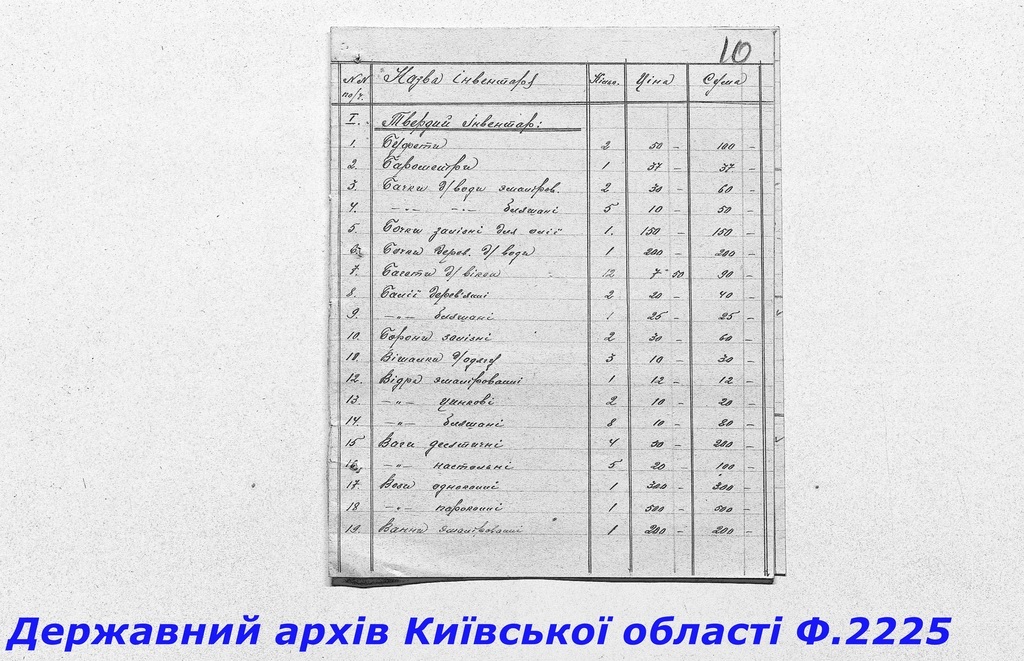 10
NN по/ч. Назва інвентаря Кільк. Ціна Сума
I. Твердий інвентар:
1. Буфети 2 50 - 100 -
2. Барометри 1 37 - 37 -
3. Бачки д/води эмаліров. 2 30 - 60 -
4. -"- -"- бляшані 5 10 - 50 -
5. Бочки залізні для олії 1. 150 - 150 -
6. Бочки дерев. д/води 1 200 - 200 -
7. Багети д/вікон 12 7 50 90 -
8. Балії дерев'яні 2 20 - 40 -
9. -"- бляшані 1 25 - 25 -
10. Борони залізні 2 30 - 60 -
11. Вішалки д/одягу 3 10 - 30 -
12. Відра эмаліровані 1 12 - 12 -
13. -"- цинкові 2 10 - 20 -
14. -"- бляшані 8 10 - 80 -
15 Ваги десятичні 4 50 - 200 -
16. -"- настольні 5 20 - 100 -
17. Вози одноконні 1 300 - 300 -
18 -"- пароконні 1 500 - 500 -
19. Ванни эмаліровані 1 200 - 200 -
Державний архів Київської області Ф.2225